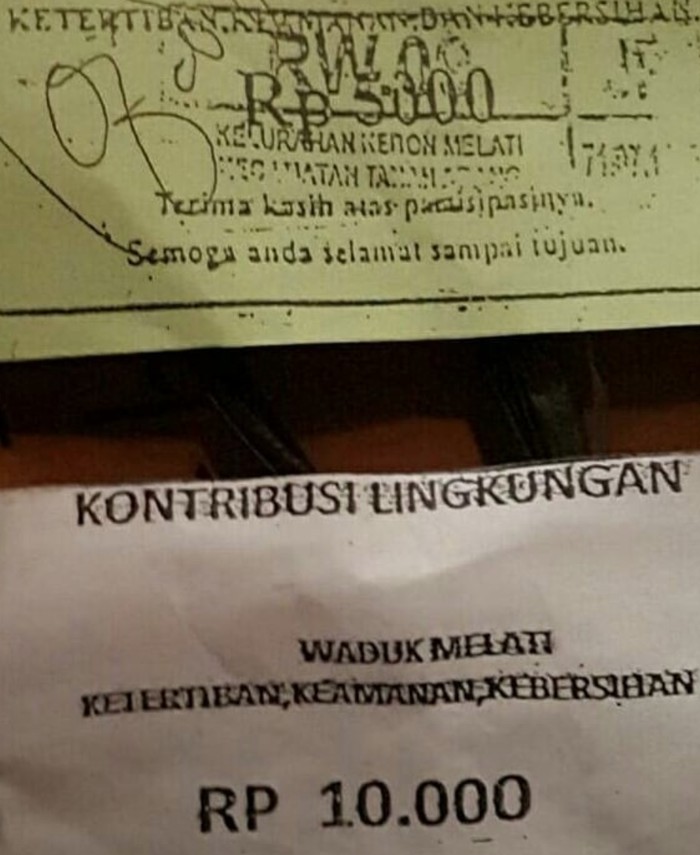 KETERTIBAN,KEAMANAN,DAN KEBERSIHAN
RW.06
Rp 5000
KELURAHAN KEBON MELATI
KECAMATAN TANAH ABANG
Terima kasih atas partisipasinya.
Semoga anda selamat sampai tujuan.
KONTRIBUSI LINGKUNGAN
WADUK MELATI
KETERTIBAN,KEAMANAN,KEBERSIHAN
RP 10.000